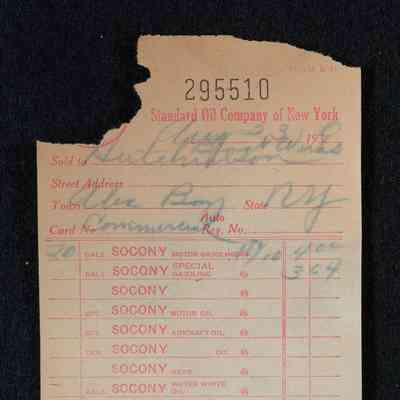 295510
Standard Oil Company of New York
Aug 23 19
Sold to Hutchinson
Street Address
Town Alex Bay State NY
Auto
Card No. Commercial Reg. No.
20 GALS. SOCONY MOTOR GASOLENE @ 4 00
GALS. SOCONY SPECIAL GASOLINE @ 3 64
SOCONY @
QTS. SOCONY MOTOR OIL @
QTS. SOCONY AIRCRAFT OIL @
SOCONY OIL @
SOCONY KERO. @
GALS. SOCONY WATER WHITE OIL @